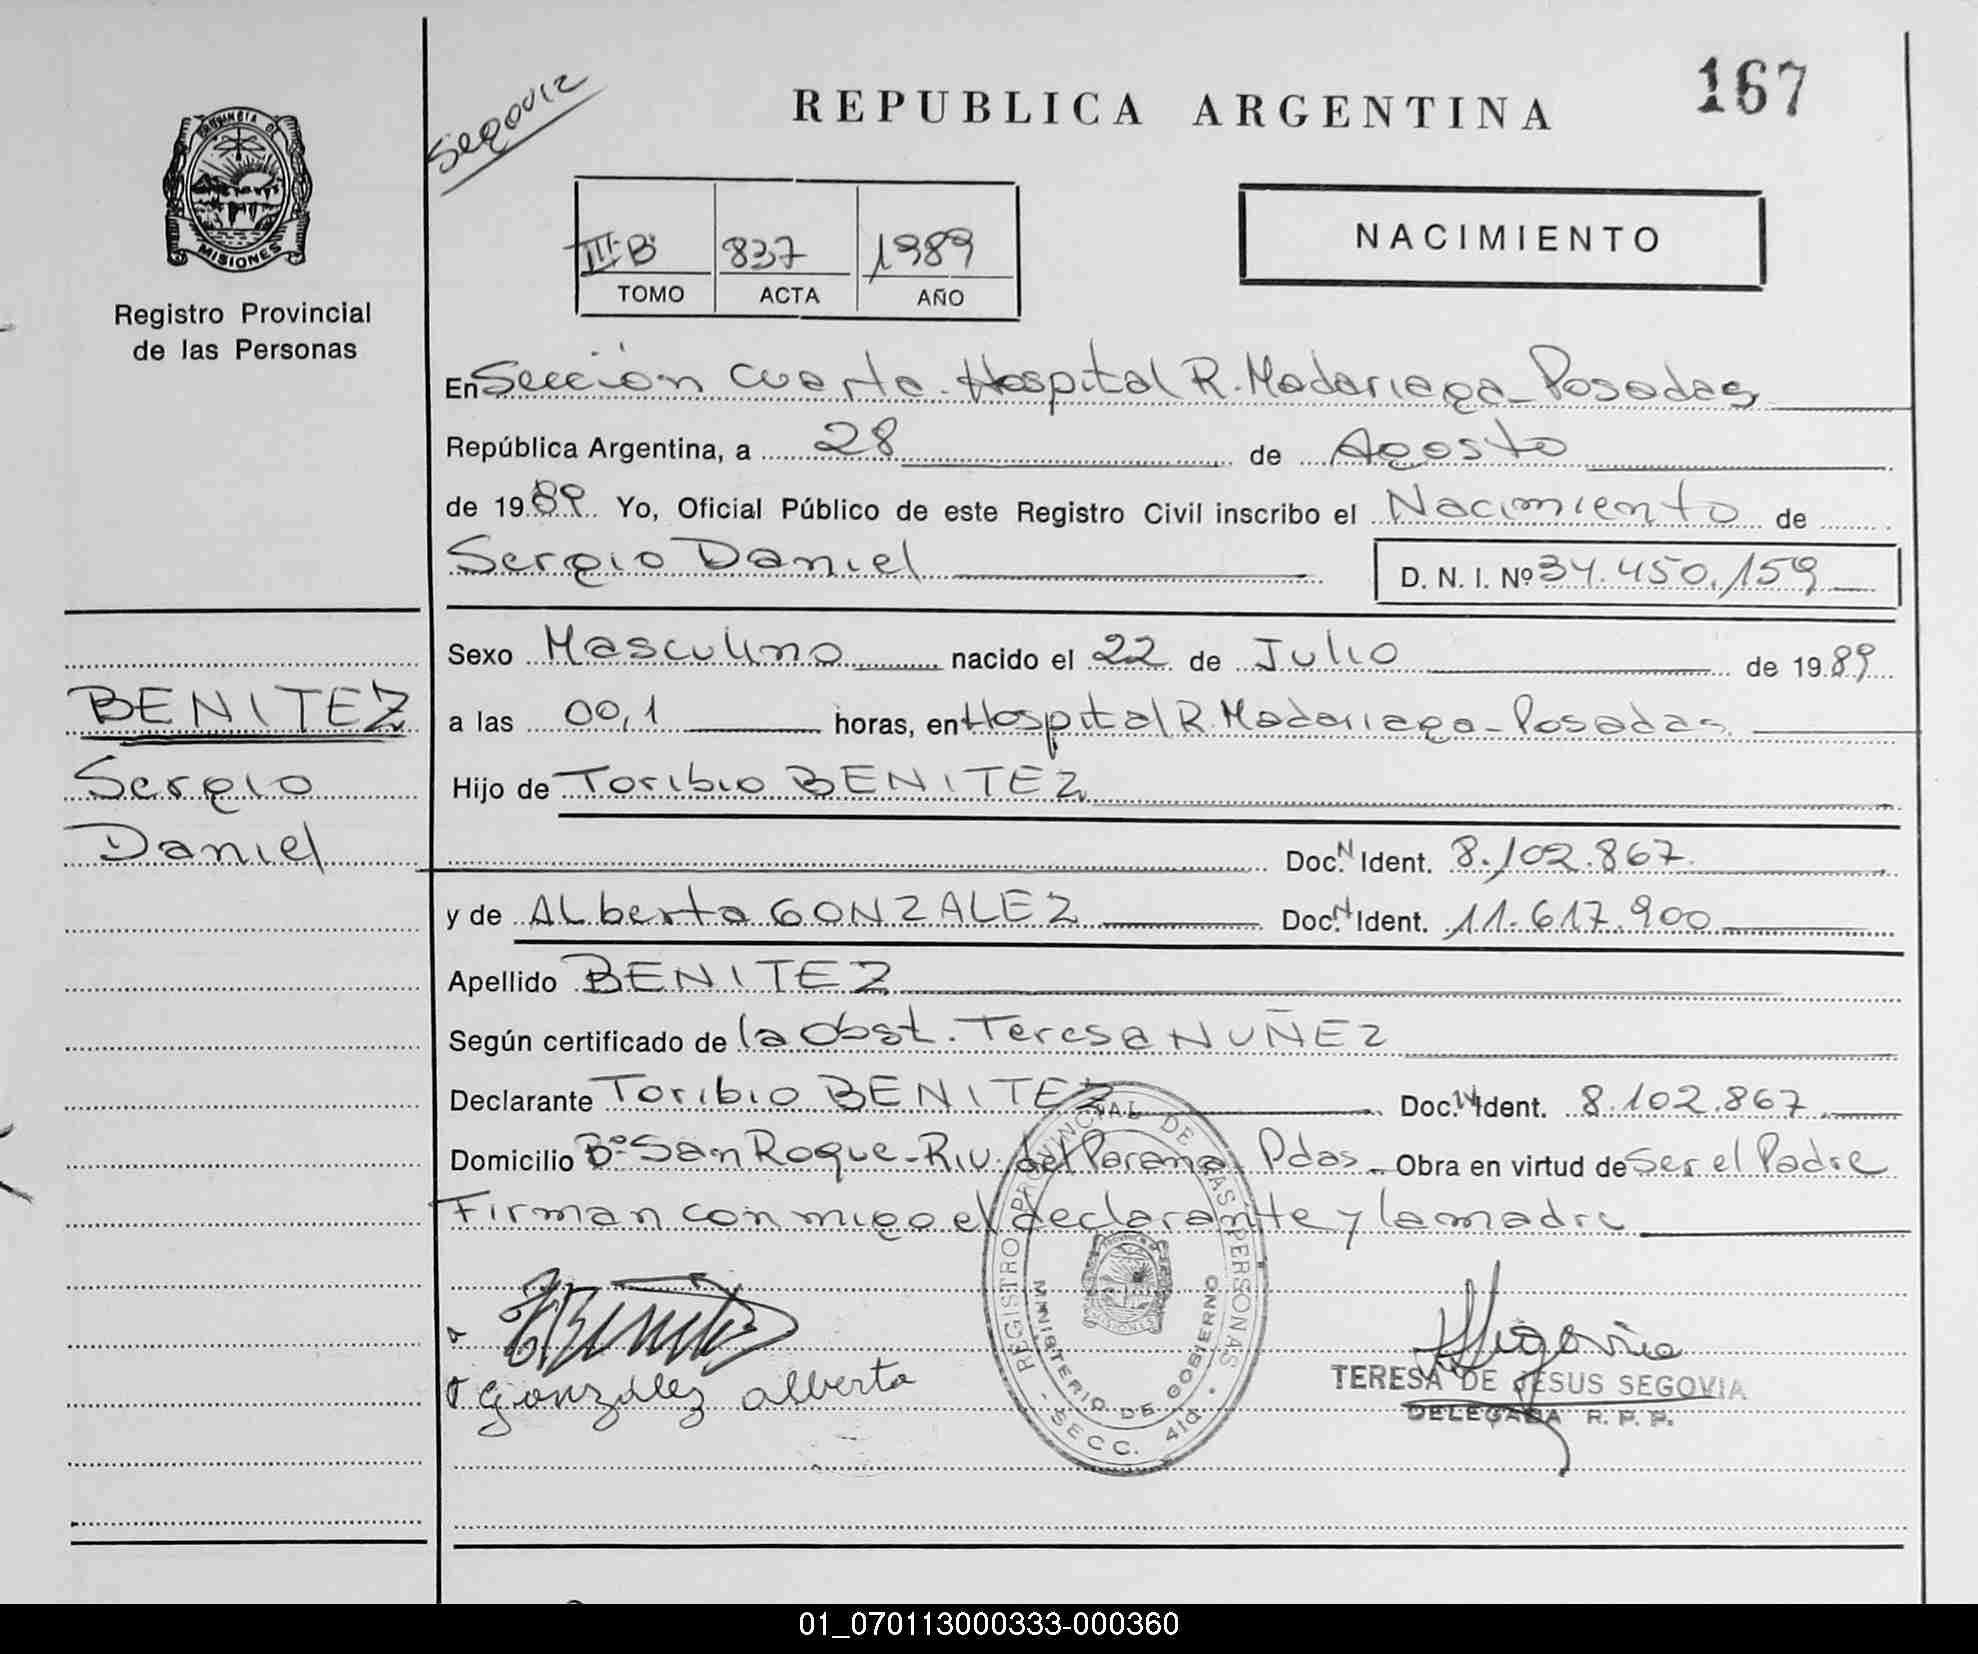 Segovia
REPUBLICA ARGENTINA
167
PROVINCIA DE
MISIONES
Registro Provincial
de las Personas
III-B 837 1989
TOMO ACTA AÑO
NACIMIENTO
En Sección Cuarta. Hospital R. Madariaga - Posadas
República Argentina, a 28 de Agosto
de 1989 Yo, Oficial Público de este Registro Civil inscribo el Nacimiento de
Sergio Daniel D. N. I. Nº 34.450.159
Sexo Masculino nacido el 22 de Julio de 1989
BENITEZ
a las 00,1 horas, en Hospital R. Madariaga - Posadas
Sergio
Hijo de Toribio BENITEZ
Daniel
Doc. N Ident. 8.102.867
y de ALberta GONZALEZ Doc. N Ident. 11.617.900
Apellido BENITEZ
Según certificado de la Obst. Teresa NUÑEZ
Declarante Toribio BENITEZ Doc. N Ident. 8.102.867
Domicilio Bº San Roque - Riv. del Parana Pdas - Obra en virtud de Ser el Padre
Firman con migo el declarante y la madre
Benitez
González alberta
REGISTRO PROVINCIAL DE LAS PERSONAS
MINISTERIO DE GOBIERNO
- SECC. 4ta -
Segovia
TERESA DE JESUS SEGOVIA
DELEGADA R. P. P.
01_070113000333-000360